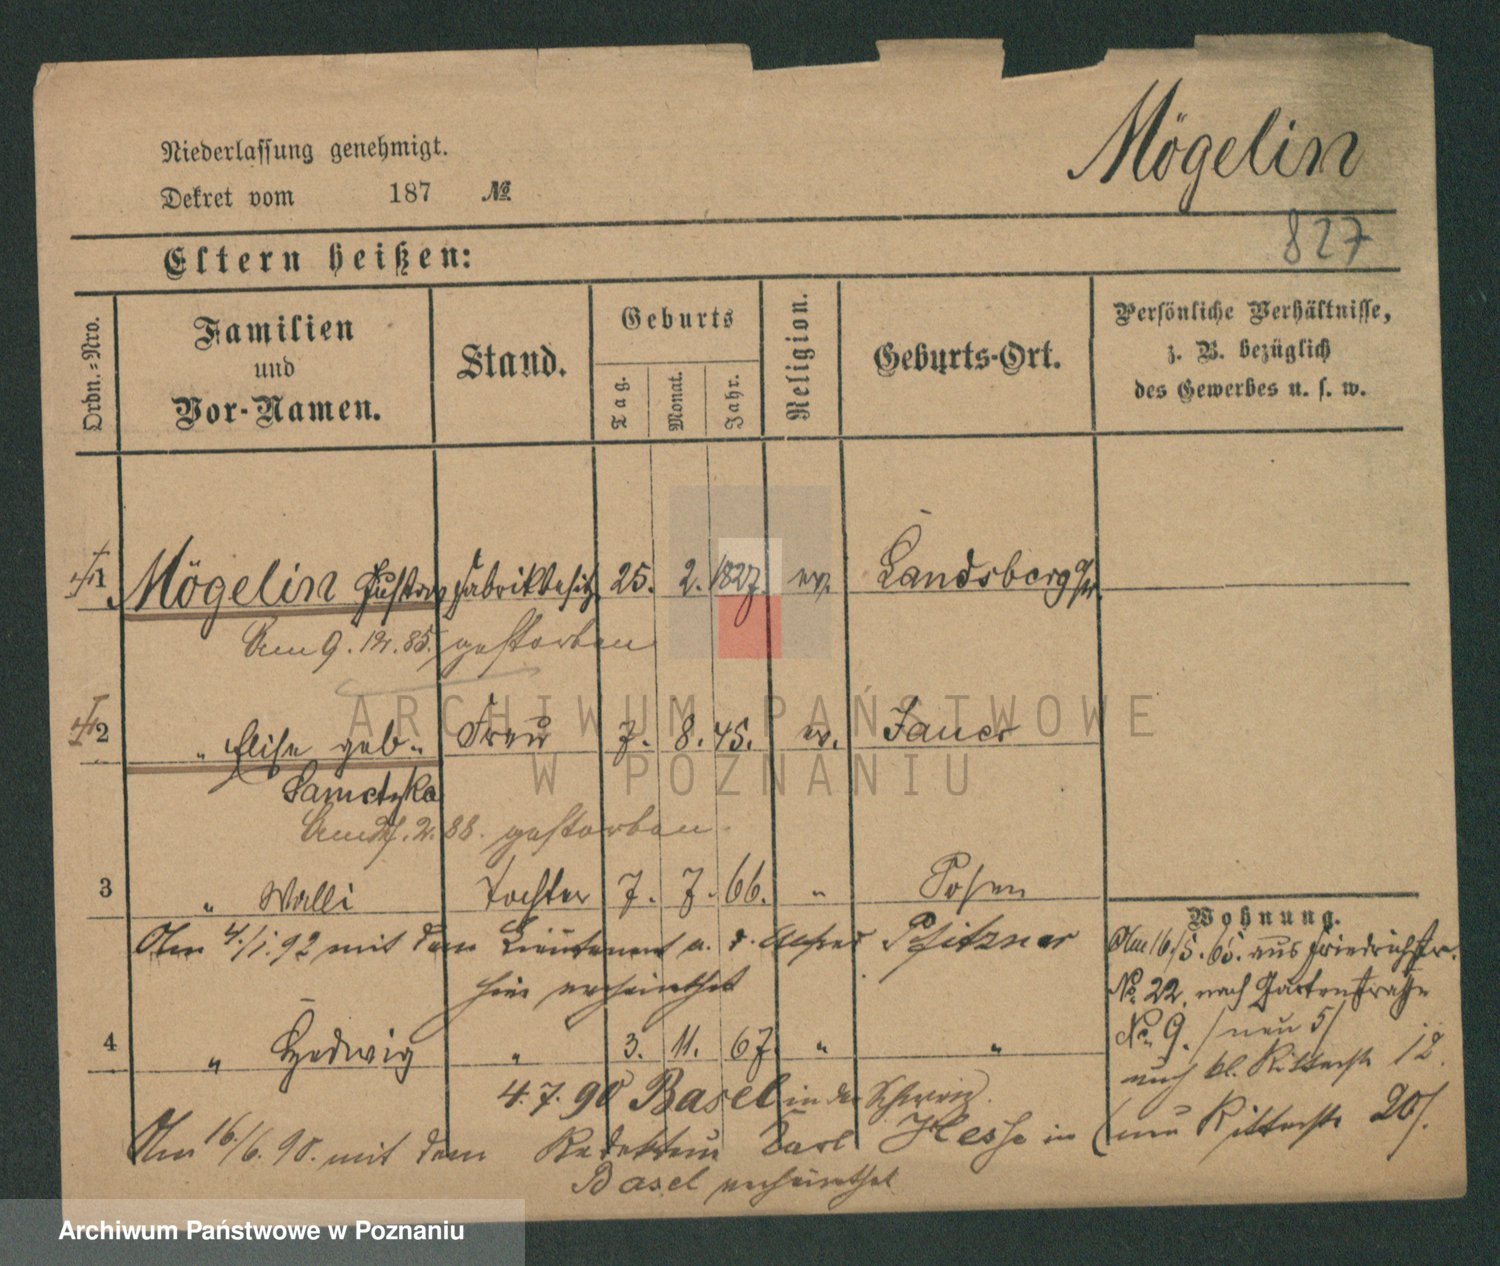 Niederlassung genehmigt.
Dekret vom 187 №
Mögelin
827
Eltern heißen:
Ordn.=Nro.
Familien und Vor-Namen.
Stand.
Geburts
Tag.
Monat.
Jahr.
Religion.
Geburts-Ort.
Persönliche Verhältnisse,
z. B. bezüglich
des Gewerbes u. s. w.
1 Mögelin Gustav Fabrikbesitz. 25. 2. 1827. ev. Landsberg a/W.
Am 9. 12. 85. gestorben
2 " Elise geb. Frau 7. 8. 45. ev. Jauer
Sametzka
2. 88. gestorben.
3 " Walli Tochter 7. 7. 66. " Posen
Am 4./1. 92 mit dem Lieutenant a. D. Alfred Pfitzner
hier verheirathet
4 " Hedwig " 3. 11. 67. " "
4. 7. 90 Basel in der Schweiz.
Am 16./6. 90. mit dem Redakteur Carl Hesse in
Basel verheirathet
Wohnung.
Am 16/5. 65. aus Friedrichstr.
No. 22. nach Gartenstraße
No. 9. /neu 5/
nach kl. Ritterstr 12.
(neu Ritterstr 20/.
ARCHIWUM PAŃSTWOWE
W POZNANIU
Archiwum Państwowe w Poznaniu